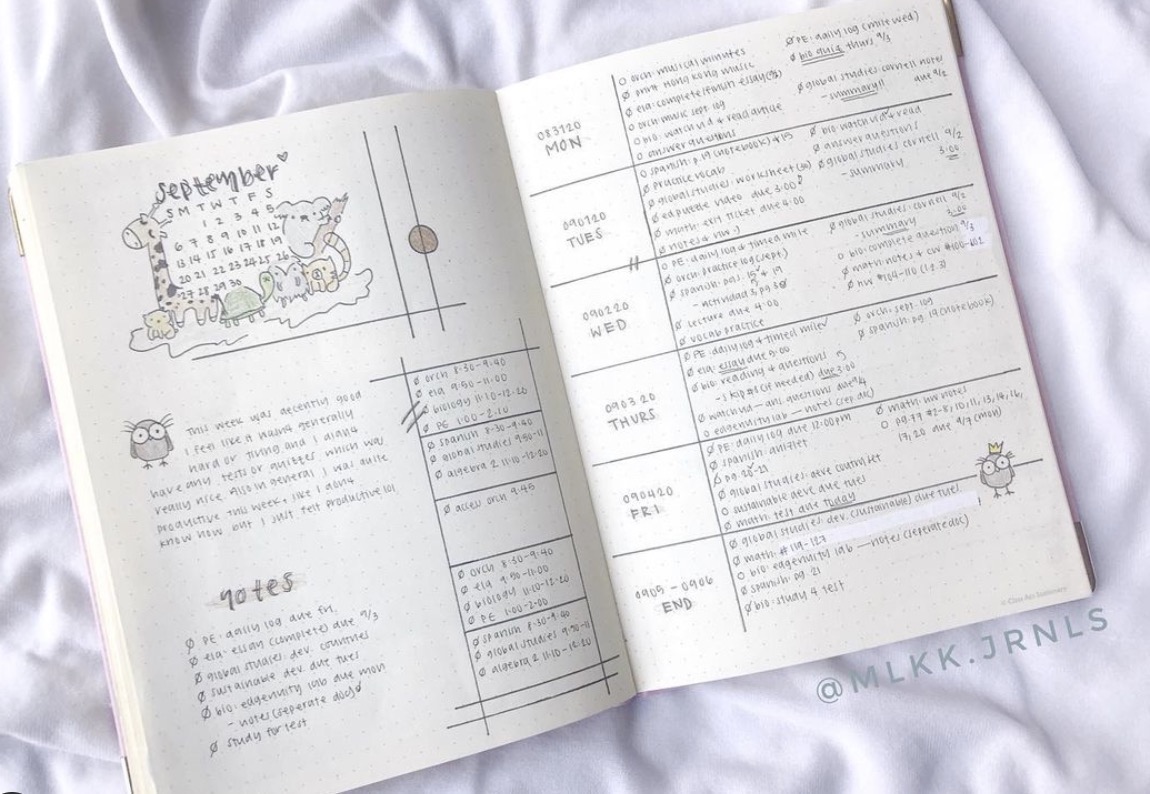 september
S M T W T F S
1 2 3 4 5
6 7 8 9 10 11 12
13 14 15 16 17 18 19
20 21 22 23 24 25 26
27 28 29 30
This week was decently good
I feel like it wasn't generally
hard or tiring and I didn't
have any tests or quizzes which was
really nice. Also in general I was quite
productive this week, like I don't
know how but I just felt productive lol
notes
Ø PE: daily log due fri.
Ø ela: essay (complete) due 9/3
Ø global studies: dev. countries
Ø sustainable dev. due tues
Ø bio: edgenuity lab due mon
- notes (seperate doc)
Ø study for test
Ø orch 8:30-9:40
Ø ela 9:50-11:00
Ø biology 11:10-12:20
Ø PE 1:00-2:10
Ø spanish 8:30-9:40
Ø global studies 9:50-11
Ø algebra 2 11:10-12:20
Ø access orch 9:45
Ø orch 8:30-9:40
Ø ela 9:50-11:00
Ø biology 11:10-12:20
Ø PE 1:00-2:00
Ø spanish 8:30-9:40
Ø global studies 9:50-11
Ø algebra 2 11:10-12:20
083120
MON
O orch: musical minutes
Ø print Hong Kong music
Ø ela: complete
O orch music sept. log
O bio: watch vid & read article
O answer questions
Ø PE: daily log (mile wed)
Ø bio quiz thurs 9/3
Ø global studies: cornell notes
- summary!! due 9/2
090120
TUES
O spanish: p.19 (notebook) + 15
Ø practice vocab
Ø global studies: worksheet
Ø edpuzzle video due 3:00
Ø math: exit ticket due 4:00
Ø notes & hw :)
Ø bio: watch vid + read
Ø answer questions
Ø global studies cornell 9/2
- summary 3:00
090220
WED
O PE: daily log & timed mile
Ø orch: practice log (sept.)
Ø spanish: pgs. 15 + 19
- actividad 3, pg 38
Ø lecture due 4:00
Ø vocab practice
Ø global studies: cornell 9/2
- summary 3:00
O bio: complete question 9/3
Ø math: notes + cw #100-102
Ø hw #104-110
0903 20
THURS
Ø PE: daily log & timed mile
Ø ela: essay due 9:00
Ø bio: reading & questions
- skip #8 (if needed) due 3:00
Ø watch vid - ans. questions due 9/4
O edgenuity lab — notes (sep. doc)
Ø orch: sept. log
Ø spanish: pg 19 (notebook)
090420
FRI
Ø PE: daily log due 12:00pm
Ø spanish:
Ø pg. 20-21
Ø global studies: deve
O sustainable deve. due tues
Ø math: test due today
Ø math: hw notes
O pg. 77 #2-8, 10, 11, 13, 14, 16,
17, 20 due 9/7 (mon)
0905 - 0906
END
Ø global studies: dev. (sustainable) due tues
Ø math: #119-127
O bio: edgenuity lab — notes (seperate doc)
Ø spanish: pg. 21
Ø bio: study 4 test
@MLKK.JRNLS